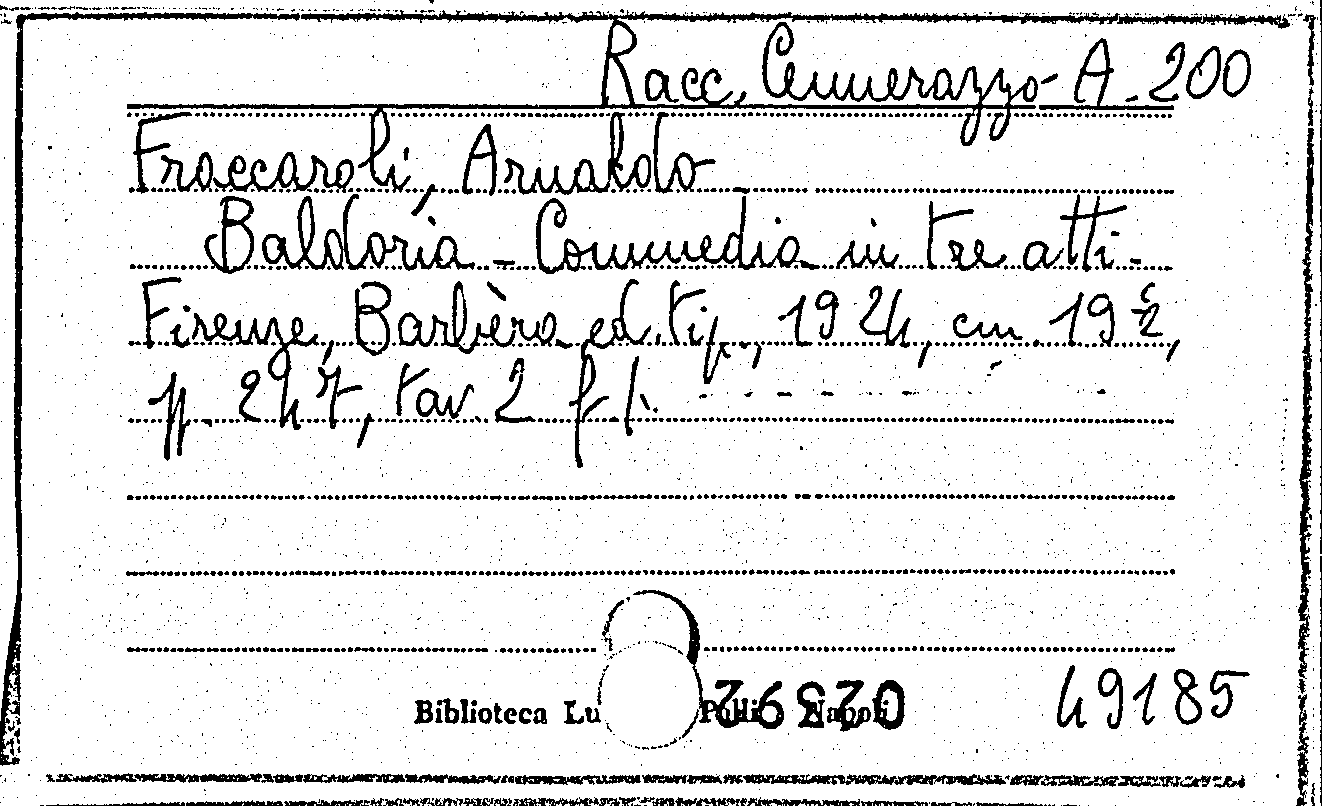 Racc. Cennerazzo - A. 200
Fraccaroli, Arnaldo
Baldoria - Commedia in tre atti -
Firenze, Barbèra ed. tip., 1924, cm. 19 ½,
pp. 247, tav. 2 f. t.
Biblioteca Lu Pulli Napoli
49185